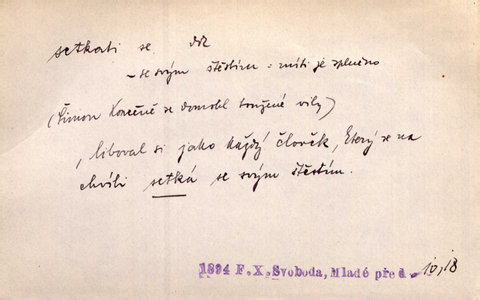 setkati se dok
– se svým štěstím = míti je splněno
(Šimon Konečně se domohl toužené vily)
, liboval si jako každý člověk, který se na
chvíli setká se svým štěstím.
1894 F. X. Svoboda, Mladé před. 10, 18